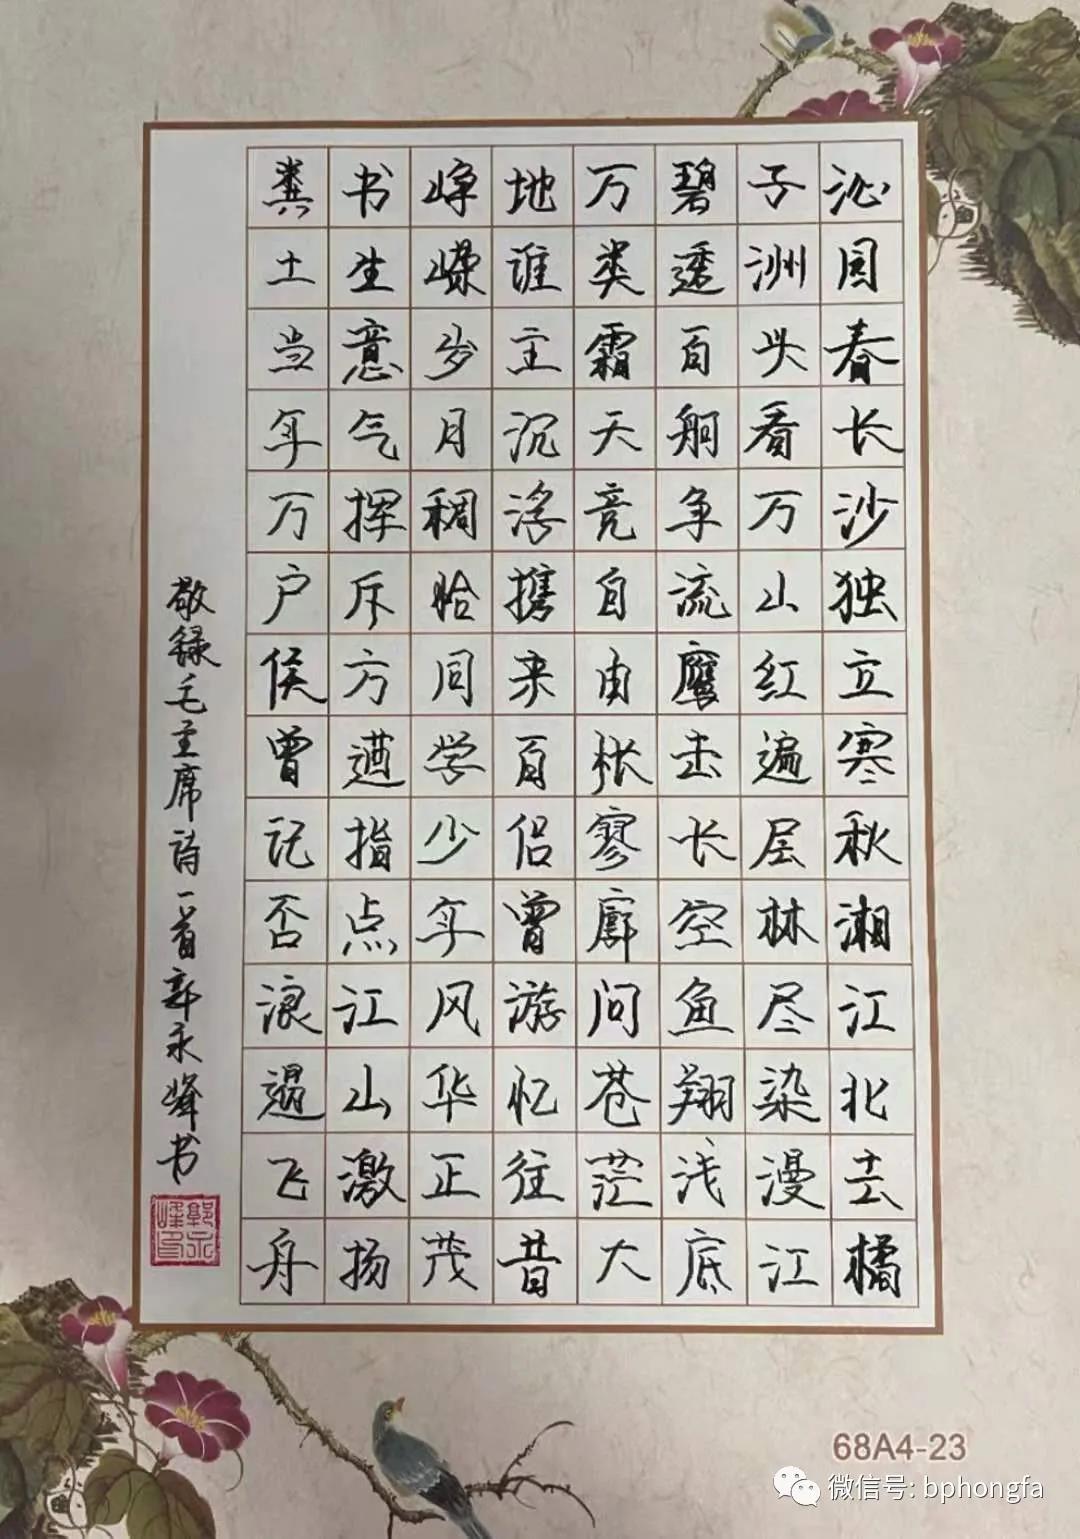 沁园春长沙独立寒秋湘江北去橘
子洲头看万山红遍层林尽染漫江
碧透百舸争流鹰击长空鱼翔浅底
万类霜天竞自由怅寥廓问苍茫大
地谁主沉浮携来百侣曾游忆往昔
峥嵘岁月稠恰同学少年风华正茂
书生意气挥斥方遒指点江山激扬
粪土当年万户侯曾记否浪遏飞舟
敬録毛主席诗一首郭永峰书
郭永峰印
68A4-23
微信号: bphongfa